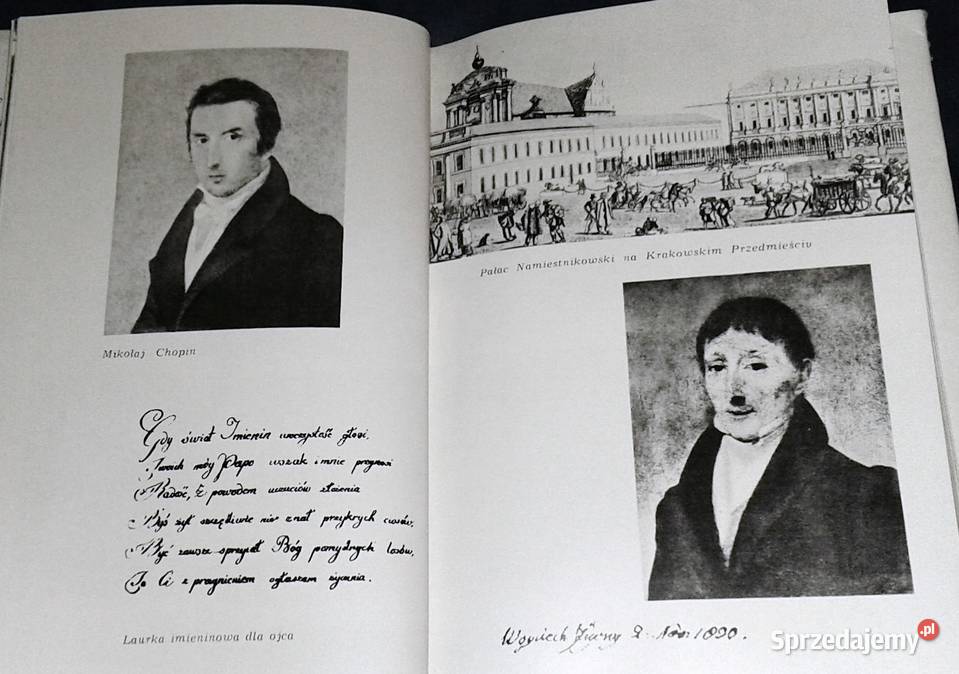 Mikołaj Chopin
Gdy świat Imienin uroczystość głosi,
Twoich móy Papo wszak i mnie przynosi
Radość, z powodem uczuciów złożenia
Byś żył szczęśliwie nie znał przykrych ciosów,
Być zawsze sprzyiał Bóg pomyślnych losów,
Te Ci z pragnieniem ogłaszam życzenia.
Laurka imieninowa dla ojca
Pałac Namiestnikowski na Krakowskim Przedmieściu
Woyciech Żiwny
Sprzedajemy.pl